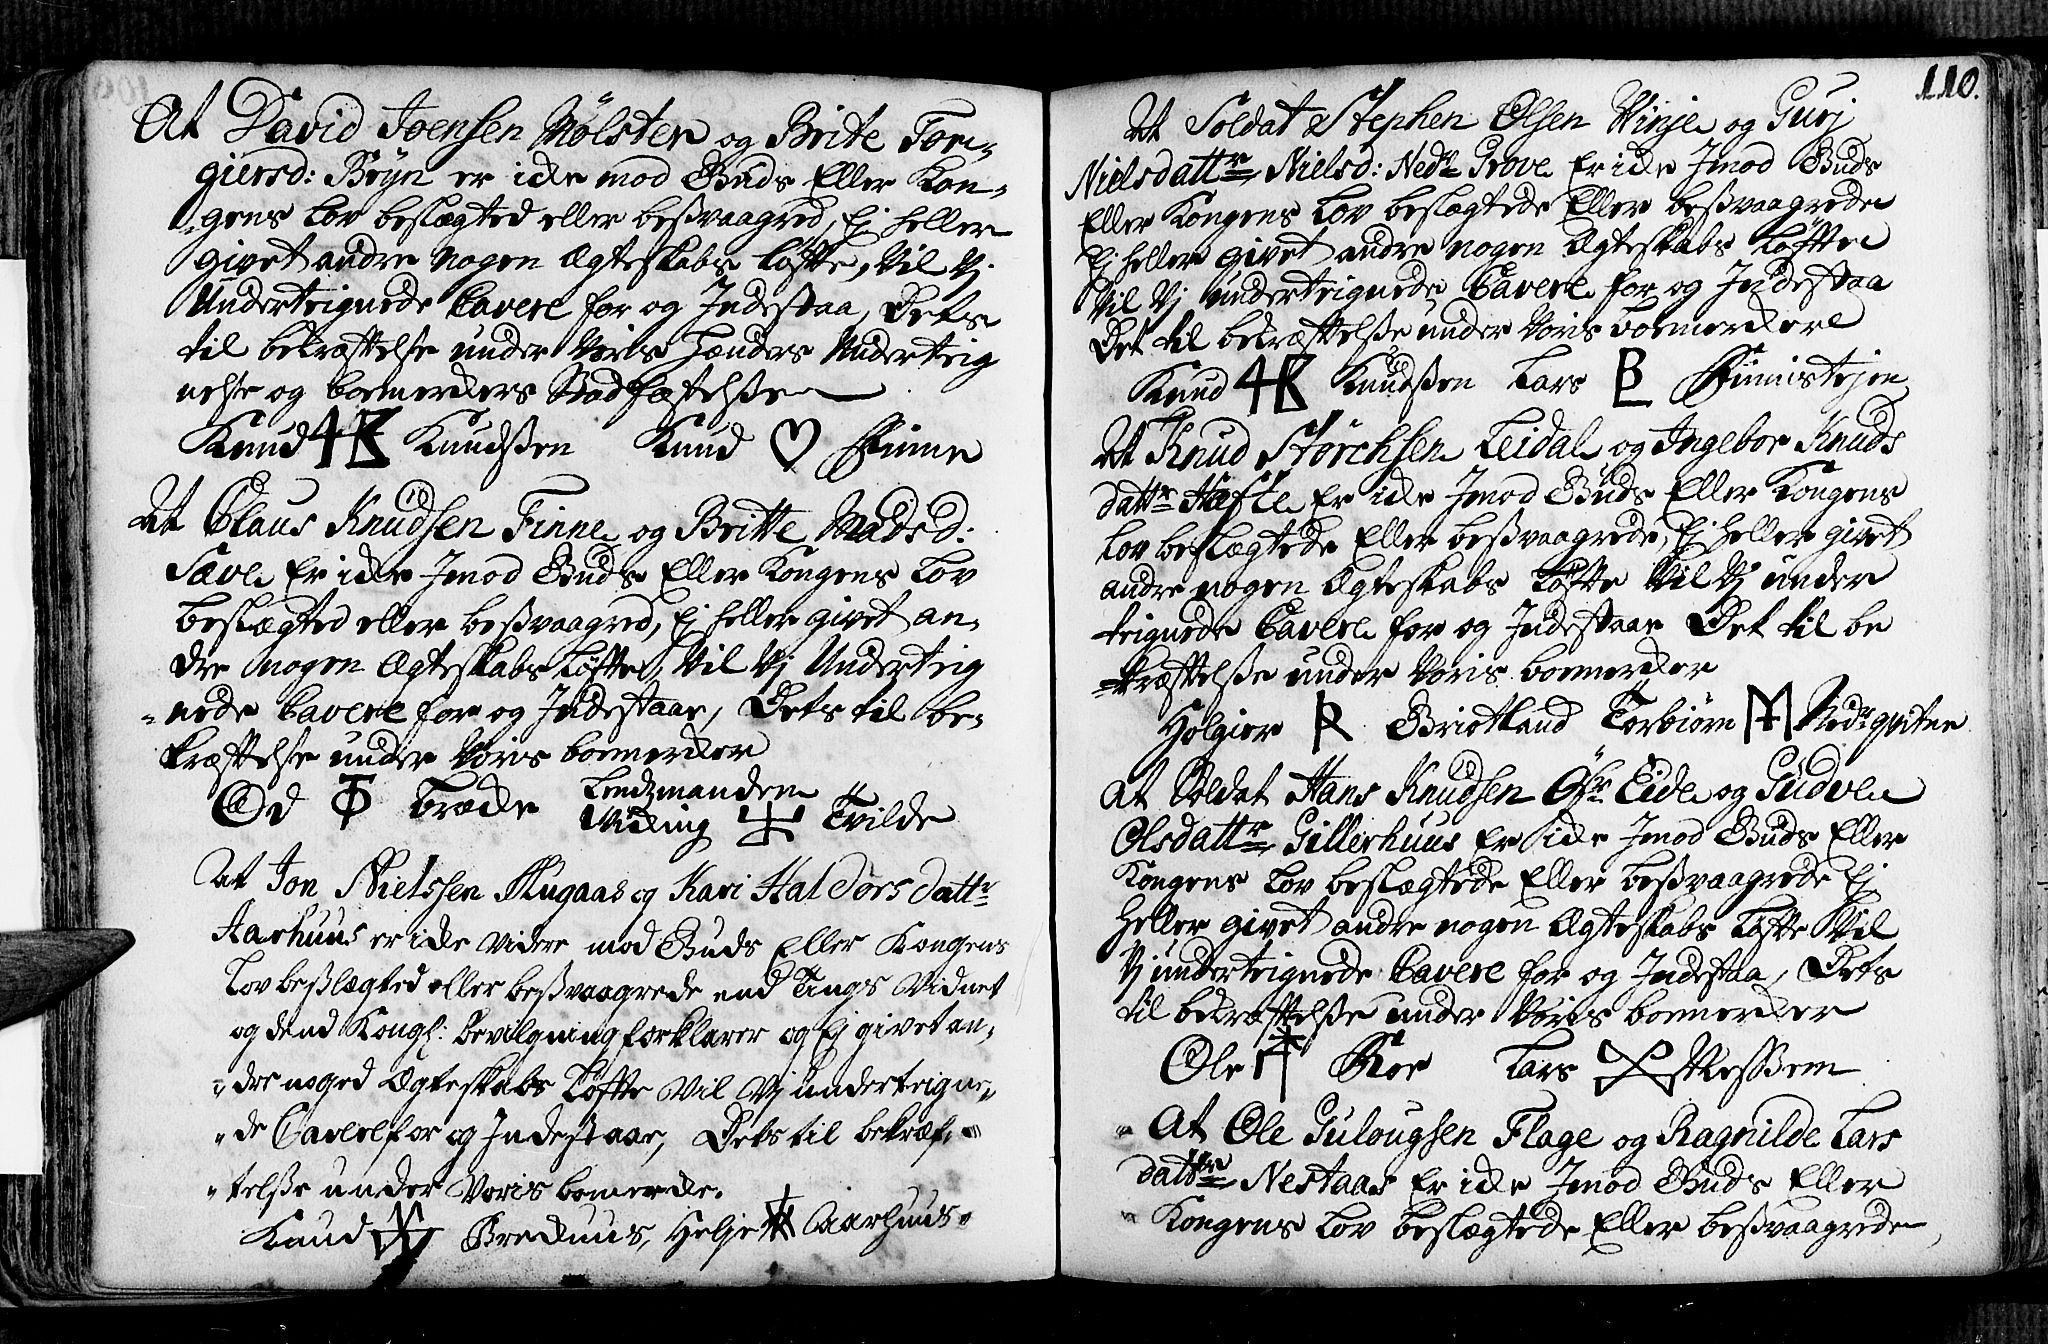 At David Joensen Mølster og Brite Tor-
giersd: Bryn er icke mod Guds Eller Kon-
-gens Lov beslægted eller beßvaagred, Ej heller
givet andre Nogen Ægteskabs Løfte, Vil Vj
Underteignede Cavere for og Indestaa, Dets
til bekræftelse under Voris Hænders Underteig
nelse og boemerckers Stadfæstelsse
Knud Knudßen Knud Finne
At Claus Knudsen Finne og Britte Madsd:
Sæve Er icke Imod Guds Eller Kongens Lov
beslægted eller beßvaagred, Ej heller givet an-
dre nogen Ægteskabs Løfte, Vil Vj Underteig
-nede Cavere for og Indestaar, Dets til be-
kræftelse under Voris boemercker
Od Træde Lendzmanden
Vicking Tvilde
At Jon Nielssen Skugaas og Kari Haldorsdattr
Aarhuus er icke videre mod Guds Eller Kongens
Lov beßlægted eller beßvaagrede end Tings Vidnet
og dend Kongl: bevilgning forklarer og Ej givet an-
-dre noged Ægteskabs Løfte Vil Vj underteigne-
-de Cavere for og Indestaar, Dets til bekræf-
-telße under Voris bomercke.
Knud Breckuus, Helje Aarhuus
110.
At Soldat Stephen Olsen Winje og Gurj
Nielsdattr Nielsd: Nedr Grove Er icke Imod Guds
Eller Kongens Lov beslægtede Eller beßvaagrede
Ej heller givet andre nogen Ægteskabs Løfte
Vil Vj underteignede Cavere for og Indestaa
Det til bekræftelße under Voris boemerckere
Knud Knudßen Lars Finnistejen
At Knud Størchsen Leidal og Ingebor Knuds
dattr Hæfte Er icke Imod Guds Eller Kongens
Lov beslægtede Eller beßvaagrede, Ej heller givet
andre nogen Ægteskabs Løfte Vil Vj under
teignede Cavere for og Indestaar Det til be
-kræftelße under Voris boemercker
Holgier Giotland Torbiørn Nedr qvitne
At Soldat Hans Knudsen Øfr Eide og Gudve
Olsdattr Gillerhuus Er icke Imod Guds Eller
Kongens Lov beslægtede Eller beßvaagrede Ej
heller givet andre nogen Ægteskabs Løfte Vil
Vj underteignede Cavere for og Indestaa, Dets
til bekræftelße under Voris boemercker
Ole Roe Lars Messem
- At Ole Gulougsen Flage og Ragnilde Lars
dattr Nestaas Er icke Imod Guds Eller
- Kongens Lov beslægtede Eller beßvaagrede